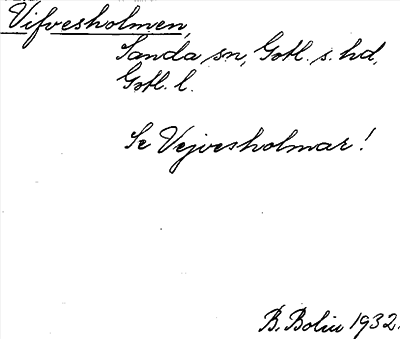 Vifvesholmen,
Sanda sn, Gotl. s. hd,
Gotl. l.
Se Vejvesholmar!
B. Bolin 1932.